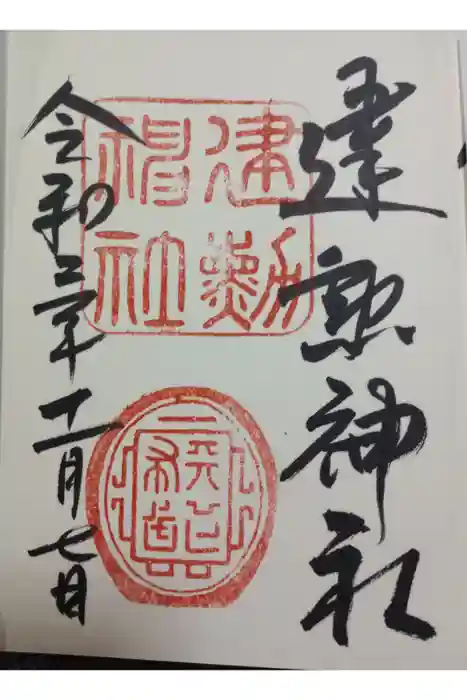 建勲神社
建勲
神社
令和三年十一月七日